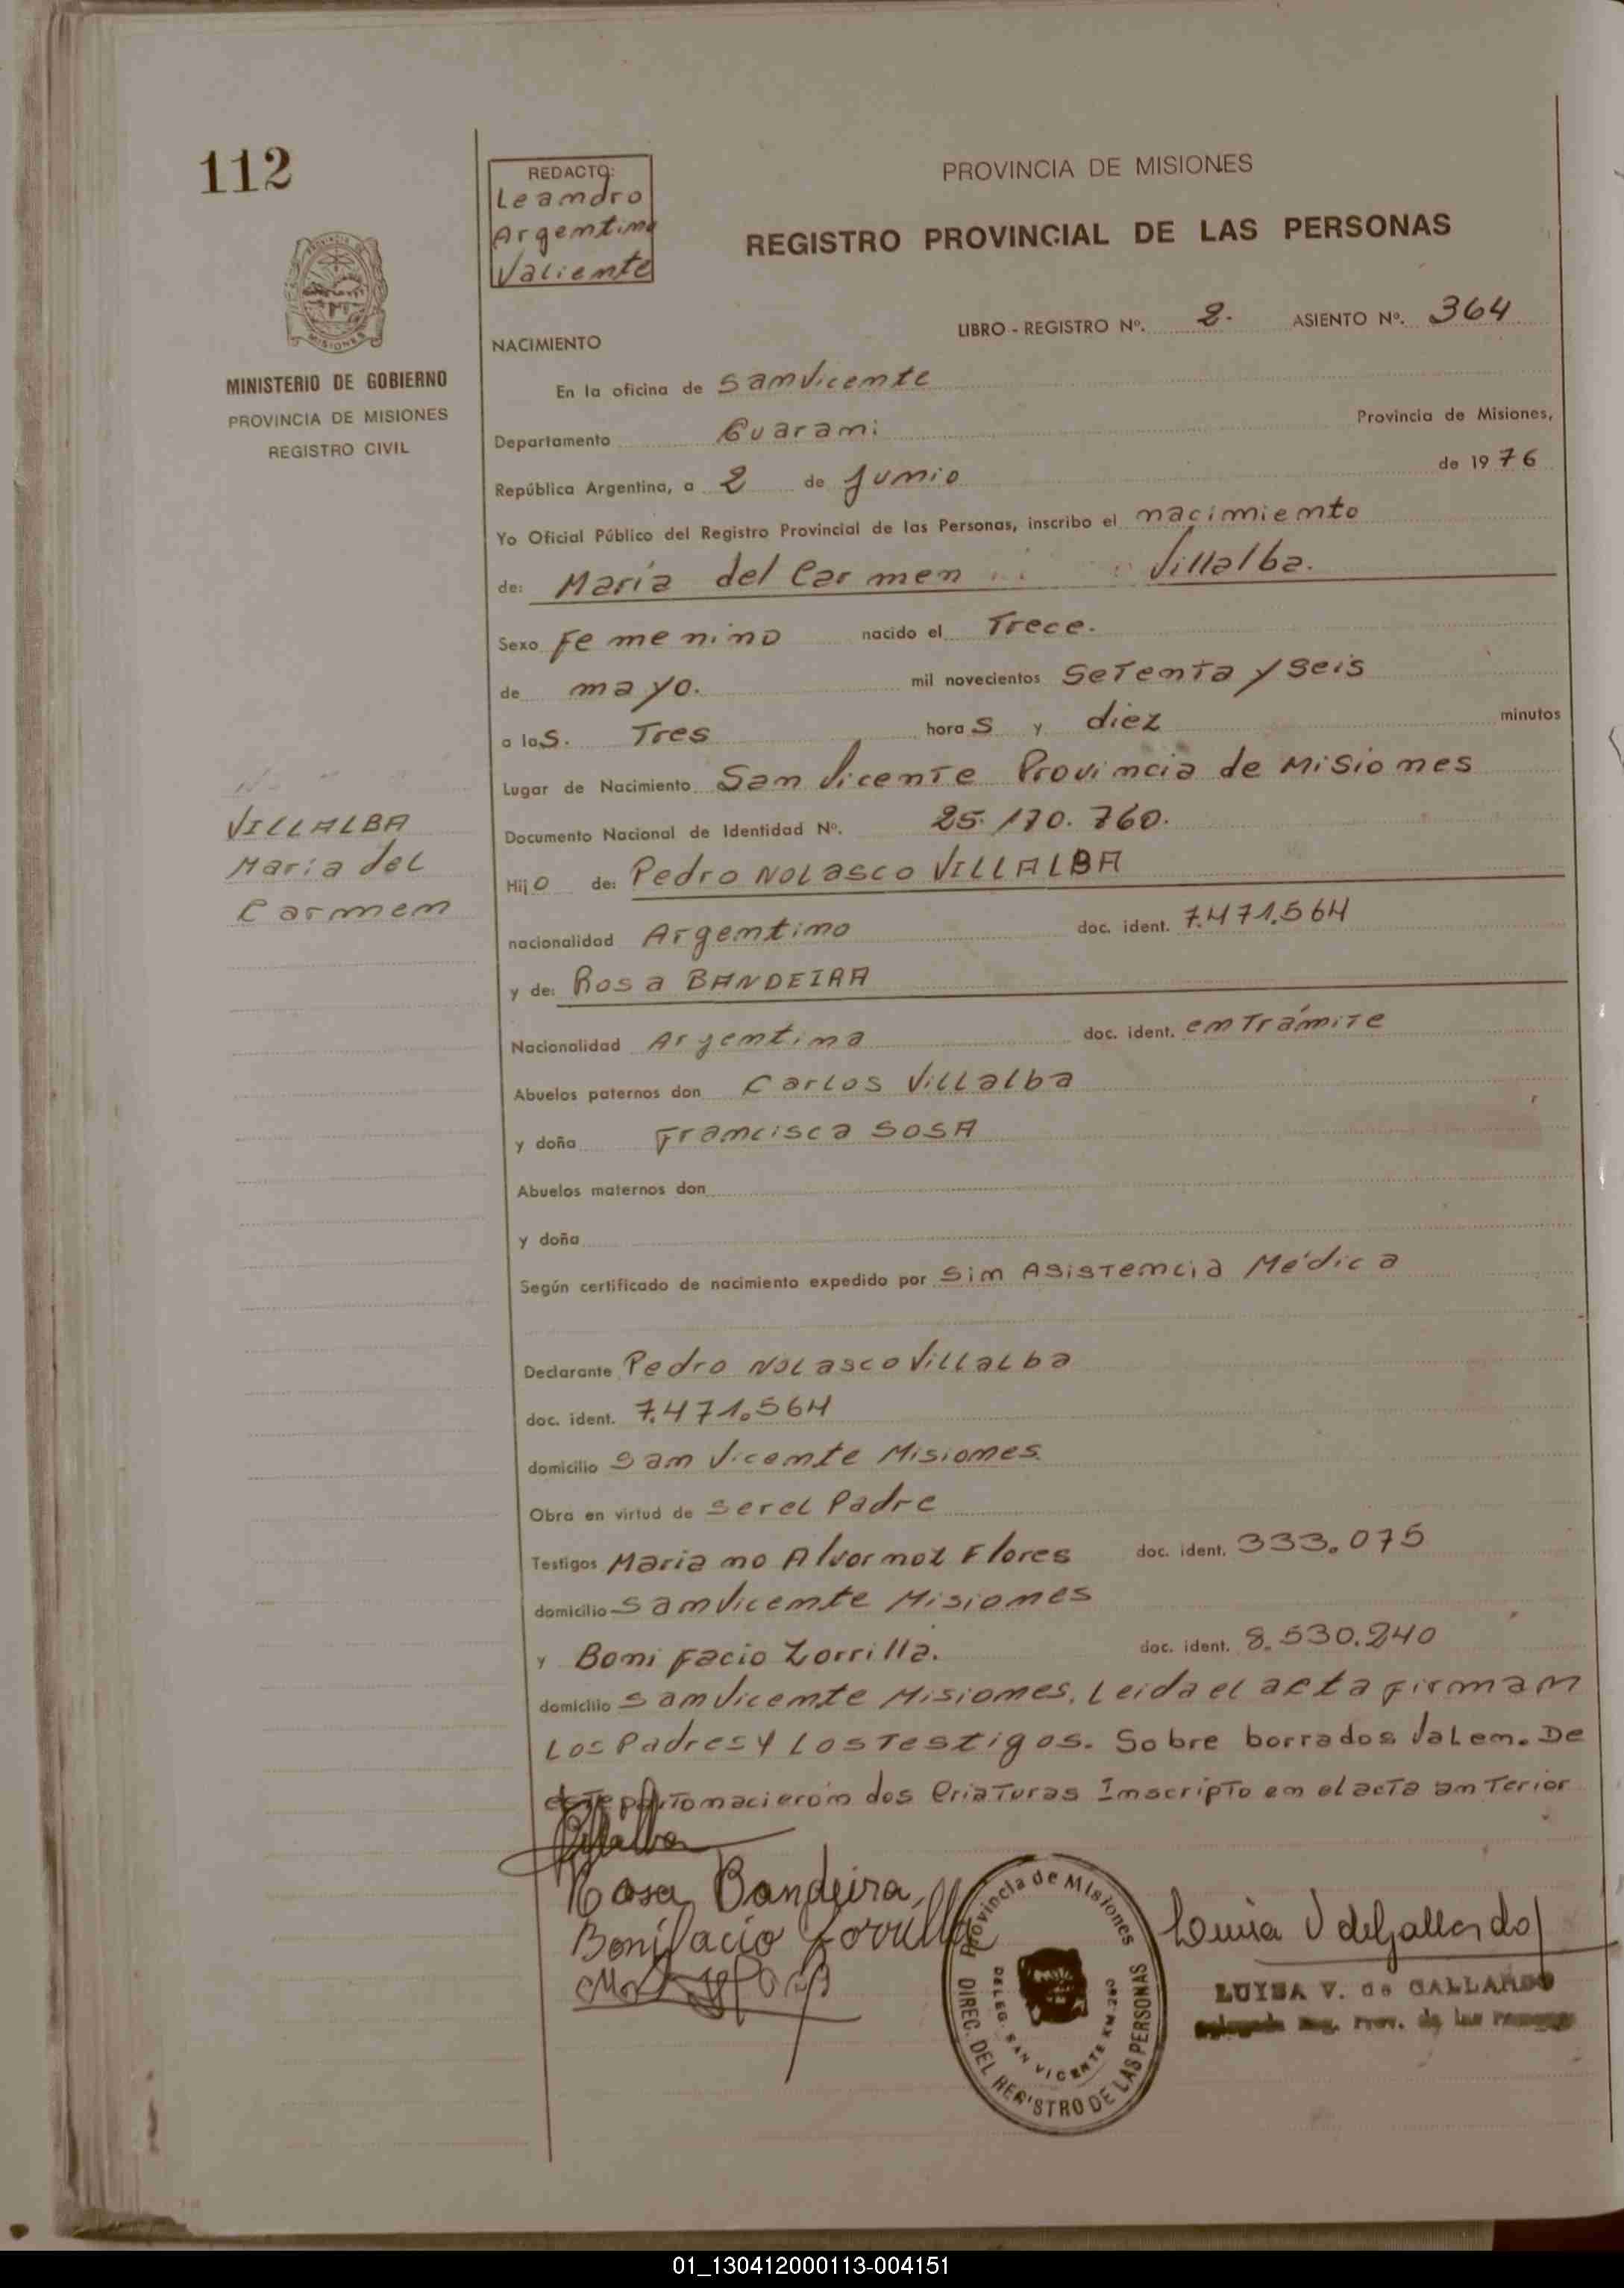 112
REDACTO:
Leandro
Argentino
Valiente
PROVINCIA DE MISIONES
REGISTRO PROVINCIAL DE LAS PERSONAS
MISIONES
MINISTERIO DE GOBIERNO
PROVINCIA DE MISIONES
REGISTRO CIVIL
LIBRO - REGISTRO Nº. 2. ASIENTO Nº. 364
NACIMIENTO
En la oficina de San Vicente
Departamento Guarani Provincia de Misiones,
República Argentina, a 2 de Junio de 1976
Yo Oficial Público del Registro Provincial de las Personas, inscribo el nacimiento
de: María del Carmen Villalba.
Sexo Femenino nacido el Trece.
de mayo. mil novecientos Setenta y Seis
a las. Tres horas y diez minutos
Lugar de Nacimiento San Vicente Provincia de Misiones
VILLALBA
María del
Carmen
Documento Nacional de Identidad Nº. 25.170.760.
Hijo de: Pedro NOLASCO VILLALBA
nacionalidad Argentino doc. ident. 7.471.564
y de: Rosa BANDEIRA
Nacionalidad Argentina doc. ident. en Trámite
Abuelos paternos don Carlos Villalba
y doña Francisca SOSA
Abuelos maternos don
y doña
Según certificado de nacimiento expedido por Sin Asistencia Médica
Declarante Pedro Nolasco Villalba
doc. ident. 7.471.564
domicilio San Vicente Misiones.
Obra en virtud de Ser el Padre
Testigos Mariano Flores doc. ident. 333.075
domicilio San Vicente Misiones
y Bonifacio Zorrilla. doc. ident. 8.530.240
domicilio San Vicente Misiones. Leida el acta firman
Los Padres y Los Testigos. Sobre borrados Valen. De
este parto nacierón dos Criaturas Inscripto en el acta anterior
Villalba
Rosa Bandeira
Bonifacio Zorrilla
Provincia de Misiones
DIREC. DEL REGISTRO DE LAS PERSONAS
DELEG. SAN VICENTE KM. 260
Luisa V de Gallardo
LUISA V. de GALLARDO
Delegada Reg. Prov. de las Personas
01_130412000113-004151